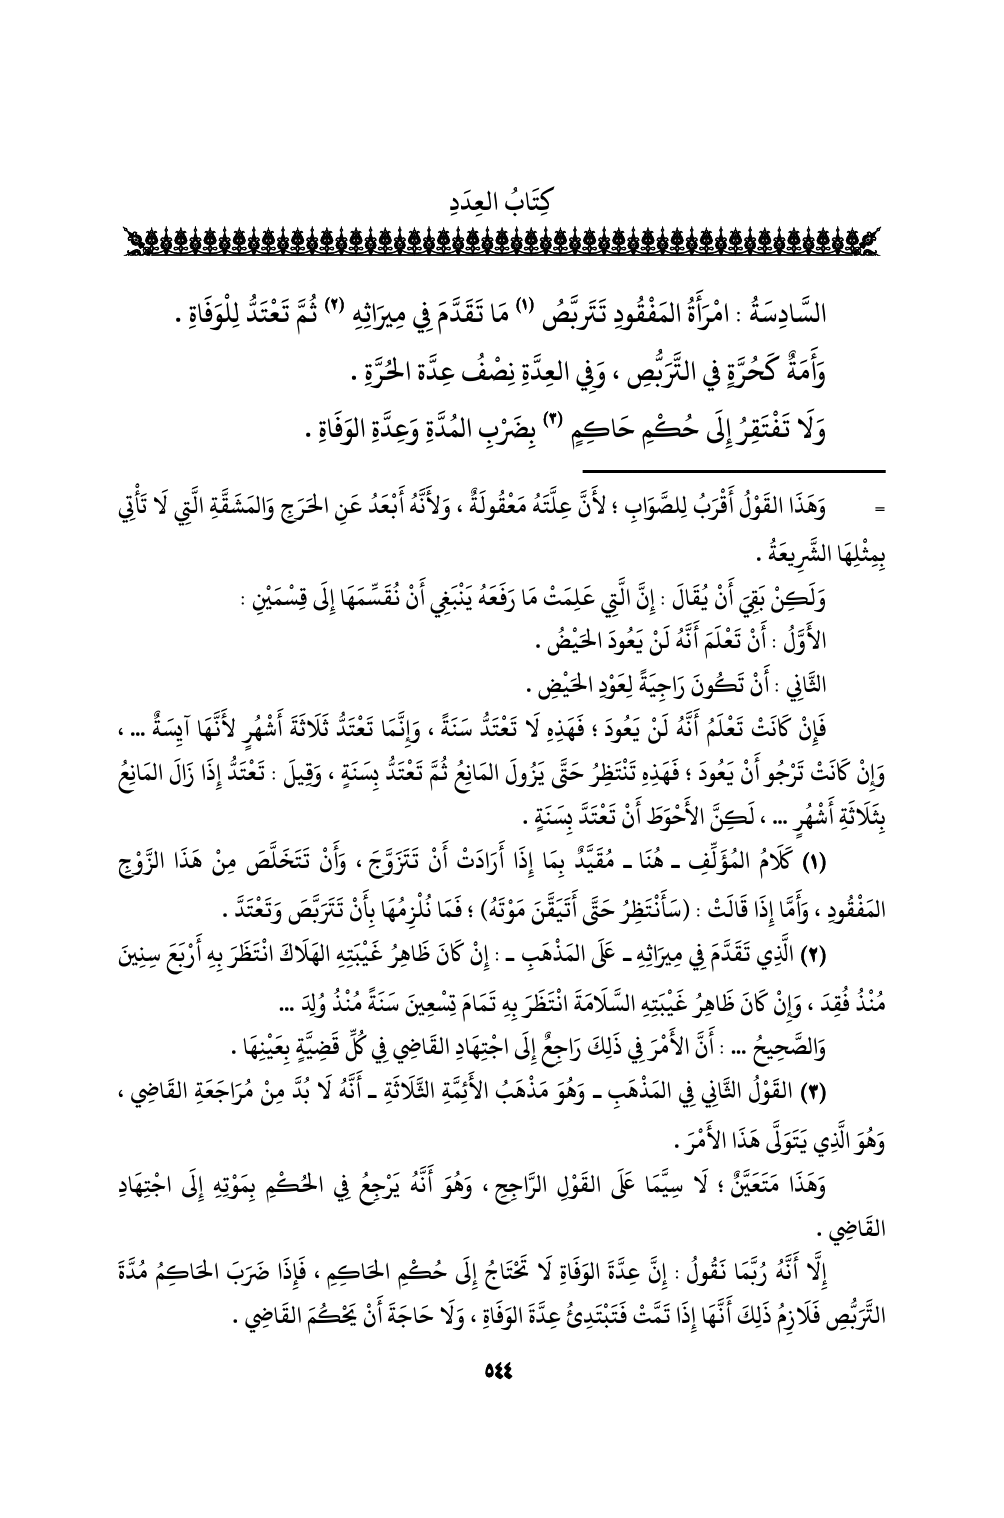 كِتَابُ العِدَدِ
السَّادِسَةُ : امْرَأَةُ المَفْقُودِ تَتَربَّصُ (١) مَا تَقَدَّمَ فِي مِيرَاثِهِ (٢) ثُمَّ تَعْتَدُّ لِلْوَفَاةِ .
وَأَمَةٌ كَحُرَّةٍ في التَّرَبُّصِ ، وَفِي العِدَّةِ نِصْفُ عِدَّة الحُرَّةِ .
وَلَا تَفْتَقِرُ إِلَى حُكْمِ حَاكِمٍ (٣) بِضَرْبِ المُدَّةِ وَعِدَّةِ الوَفَاةِ .
= وَهَذَا القَوْلُ أَقْرَبُ لِلصَّوَابِ ؛ لأَنَّ عِلَّتَهُ مَعْقُولَةٌ ، وَلأَنَّهُ أَبْعَدُ عَنِ الحَرَجِ وَالمَشَقَّةِ الَّتِي لَا تَأْتِي
بِمِثْلِهَا الشَّرِيعَةُ .
وَلَكِنْ بَقِيَ أَنْ يُقَالَ : إِنَّ الَّتِي عَلِمَتْ مَا رَفَعَهُ يَنْبَغِي أَنْ نُقَسِّمَهَا إِلَى قِسْمَيْنِ :
الأَوَّلُ : أَنْ تَعْلَمَ أَنَّهُ لَنْ يَعُودَ الحَيْضُ .
الثَّانِي : أَنْ تَكُونَ رَاجِيَةً لِعَوْدِ الحَيْضِ .
فَإِنْ كَانَتْ تَعْلَمُ أَنَّهُ لَنْ يَعُودَ ؛ فَهَذِهِ لَا تَعْتَدُّ سَنَةً ، وَإِنَّمَا تَعْتَدُّ ثَلَاثَةَ أَشْهُرٍ لأَنَّهَا آيِسَةٌ ... ،
وَإِنْ كَانَتْ تَرْجُو أَنْ يَعُودَ ؛ فَهَذِهِ تَنْتَظِرُ حَتَّى يَزُولَ المَانِعُ ثُمَّ تَعْتَدُّ بِسَنَةٍ ، وَقِيلَ : تَعْتَدُّ إِذَا زَالَ المَانِعُ
بِثَلَاثَةِ أَشْهُرٍ ... ، لَكِنَّ الأَحْوَطَ أَنْ تَعْتَدَّ بِسَنَةٍ .
(١) كَلَامُ المُؤَلِّفِ ـ هُنَا ـ مُقَيَّدٌ بِمَا إِذَا أَرَادَتْ أَنْ تَتَزَوَّجَ ، وَأَنْ تَتَخَلَّصَ مِنْ هَذَا الزَّوْجِ
المَفْقُودِ ، وَأَمَّا إِذَا قَالَتْ : (سَأَنْتَظِرُ حَتَّى أَتَيَقَّنَ مَوْتَهُ) ؛ فَمَا نُلْزِمُهَا بِأَنْ تَتَرَبَّصَ وَتَعْتَدَّ .
(٢) الَّذِي تَقَدَّمَ فِي مِيرَاثِهِ ـ عَلَى المَذْهَبِ ـ : إِنْ كَانَ ظَاهِرُ غَيْبَتِهِ الهَلَاكَ انْتَظَرَ بِهِ أَرْبَعَ سِنِينَ
مُنْذُ فُقِدَ ، وَإِنْ كَانَ ظَاهِرُ غَيْبَتِهِ السَّلَامَةَ انْتَظَرَ بِهِ تَمَامَ تِسْعِينَ سَنَةً مُنْذُ وُلِدَ ...
وَالصَّحِيحُ ... : أَنَّ الأَمْرَ فِي ذَلِكَ رَاجِعٌ إِلَى اجْتِهَادِ القَاضِي فِي كُلِّ قَضِيَّةٍ بِعَيْنِهَا .
(٣) القَوْلُ الثَّانِي فِي المَذْهَبِ ـ وَهُوَ مَذْهَبُ الأَئِمَّةِ الثَّلَاثَةِ ـ أَنَّهُ لَا بُدَّ مِنْ مُرَاجَعَةِ القَاضِي ،
وَهُوَ الَّذِي يَتَوَلَّى هَذَا الأَمْرَ .
وَهَذَا مَتَعَيَّنٌ ؛ لَا سِيَّمَا عَلَى القَوْلِ الرَّاجِحِ ، وَهُوَ أَنَّهُ يَرْجِعُ فِي الحُكْمِ بِمَوْتِهِ إِلَى اجْتِهَادِ
القَاضِي .
إِلَّا أَنَّهُ رُبَّمَا نَقُولُ : إِنَّ عِدَّةَ الوَفَاةِ لَا تَحْتَاجُ إِلَى حُكْمِ الحَاكِمِ ، فَإِذَا ضَرَبَ الحَاكِمُ مُدَّةَ
التَّرَبُّصِ فَلَازِمُ ذَلِكَ أَنَّهَا إِذَا تَمَّتْ فَتَبْتَدِئُ عِدَّةَ الوَفَاةِ ، وَلَا حَاجَةَ أَنْ يَحْكُمَ القَاضِي .
٥٤٤